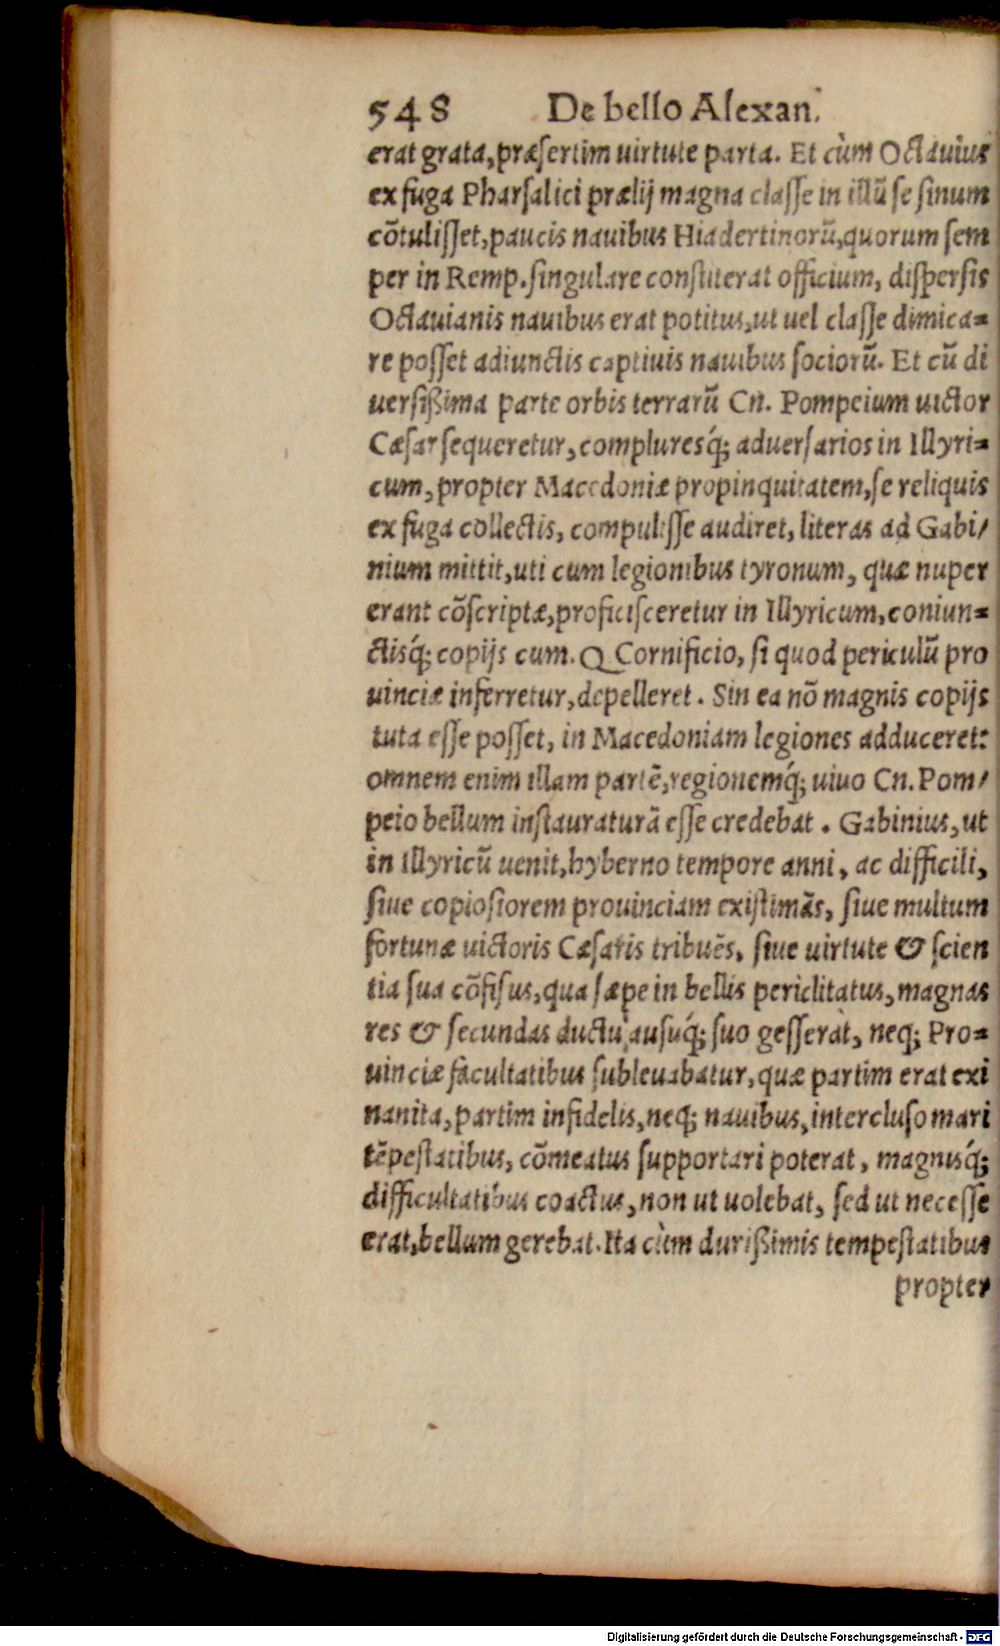 548 De bello Alexan.
erat grata, præsertim uirtute parta. Et cùm Octauius
ex fuga Pharsalici prælij magna classe in illũ se sinum
cõtulisset, paucis nauibus Hiadertinorũ, quorum sem
per in Remp. singulare constiterat officium, dispersis
Octauianis nauibus erat potitus, ut uel classe dimica=
re posset adiunctis captiuis nauibus sociorũ. Et cũ di
uersißima parte orbis terrarũ Cn. Pompeium uictor
Cæsar sequeretur, compluresq́; aduersarios in Illyri=
cum, propter Macedoniæ propinquitatem, se reliquis
ex fuga collectis, compulisse audiret, literas ad Gabi/
nium mittit, uti cum legionibus tyronum, quæ nuper
erant cõscriptæ, proficisceretur in Illyricum, coniun=
ctisq́; copijs cum. Q Cornificio, si quod periculũ pro
uinciæ inferretur, depelleret. Sin ea nõ magnis copijs
tuta esse posset, in Macedoniam legiones adduceret:
omnem enim illam partẽ, regionemq́; uiuo Cn. Pom/
peio bellum instauraturã esse credebat. Gabinius, ut
in Illyricũ uenit, hyberno tempore anni, ac difficili,
siue copiosiorem prouinciam existimãs, siue multum
fortunæ uictoris Cæsaris tribuẽs, siue uirtute & scien
tia sua cõfisus, qua sæpe in bellis periclitatus, magnas
res & secundas ductu ausuq́; suo gesserat, neq; Pro=
uinciæ facultatibus subleuabatur, quæ partim erat exi
nanita, partim infidelis, neq; nauibus, intercluso mari
tẽpestatibus, cõmeatus supportari poterat, magnisq́;
difficultatibus coactus, non ut uolebat, sed ut necesse
erat, bellum gerebat. Ita cùm durißimis tempestatibus
propter
Digitalisierung gefördert durch die Deutsche Forschungsgemeinschaft - DFG